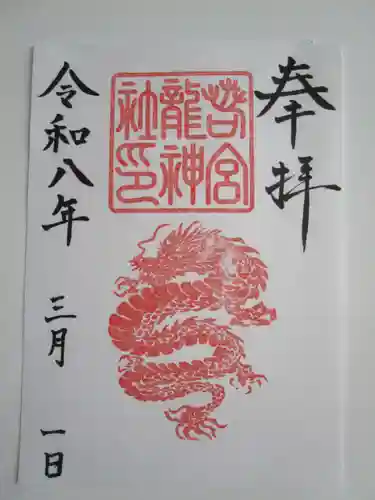 奉拝
苔宮
龍神
社印
令和八年 三月 一日